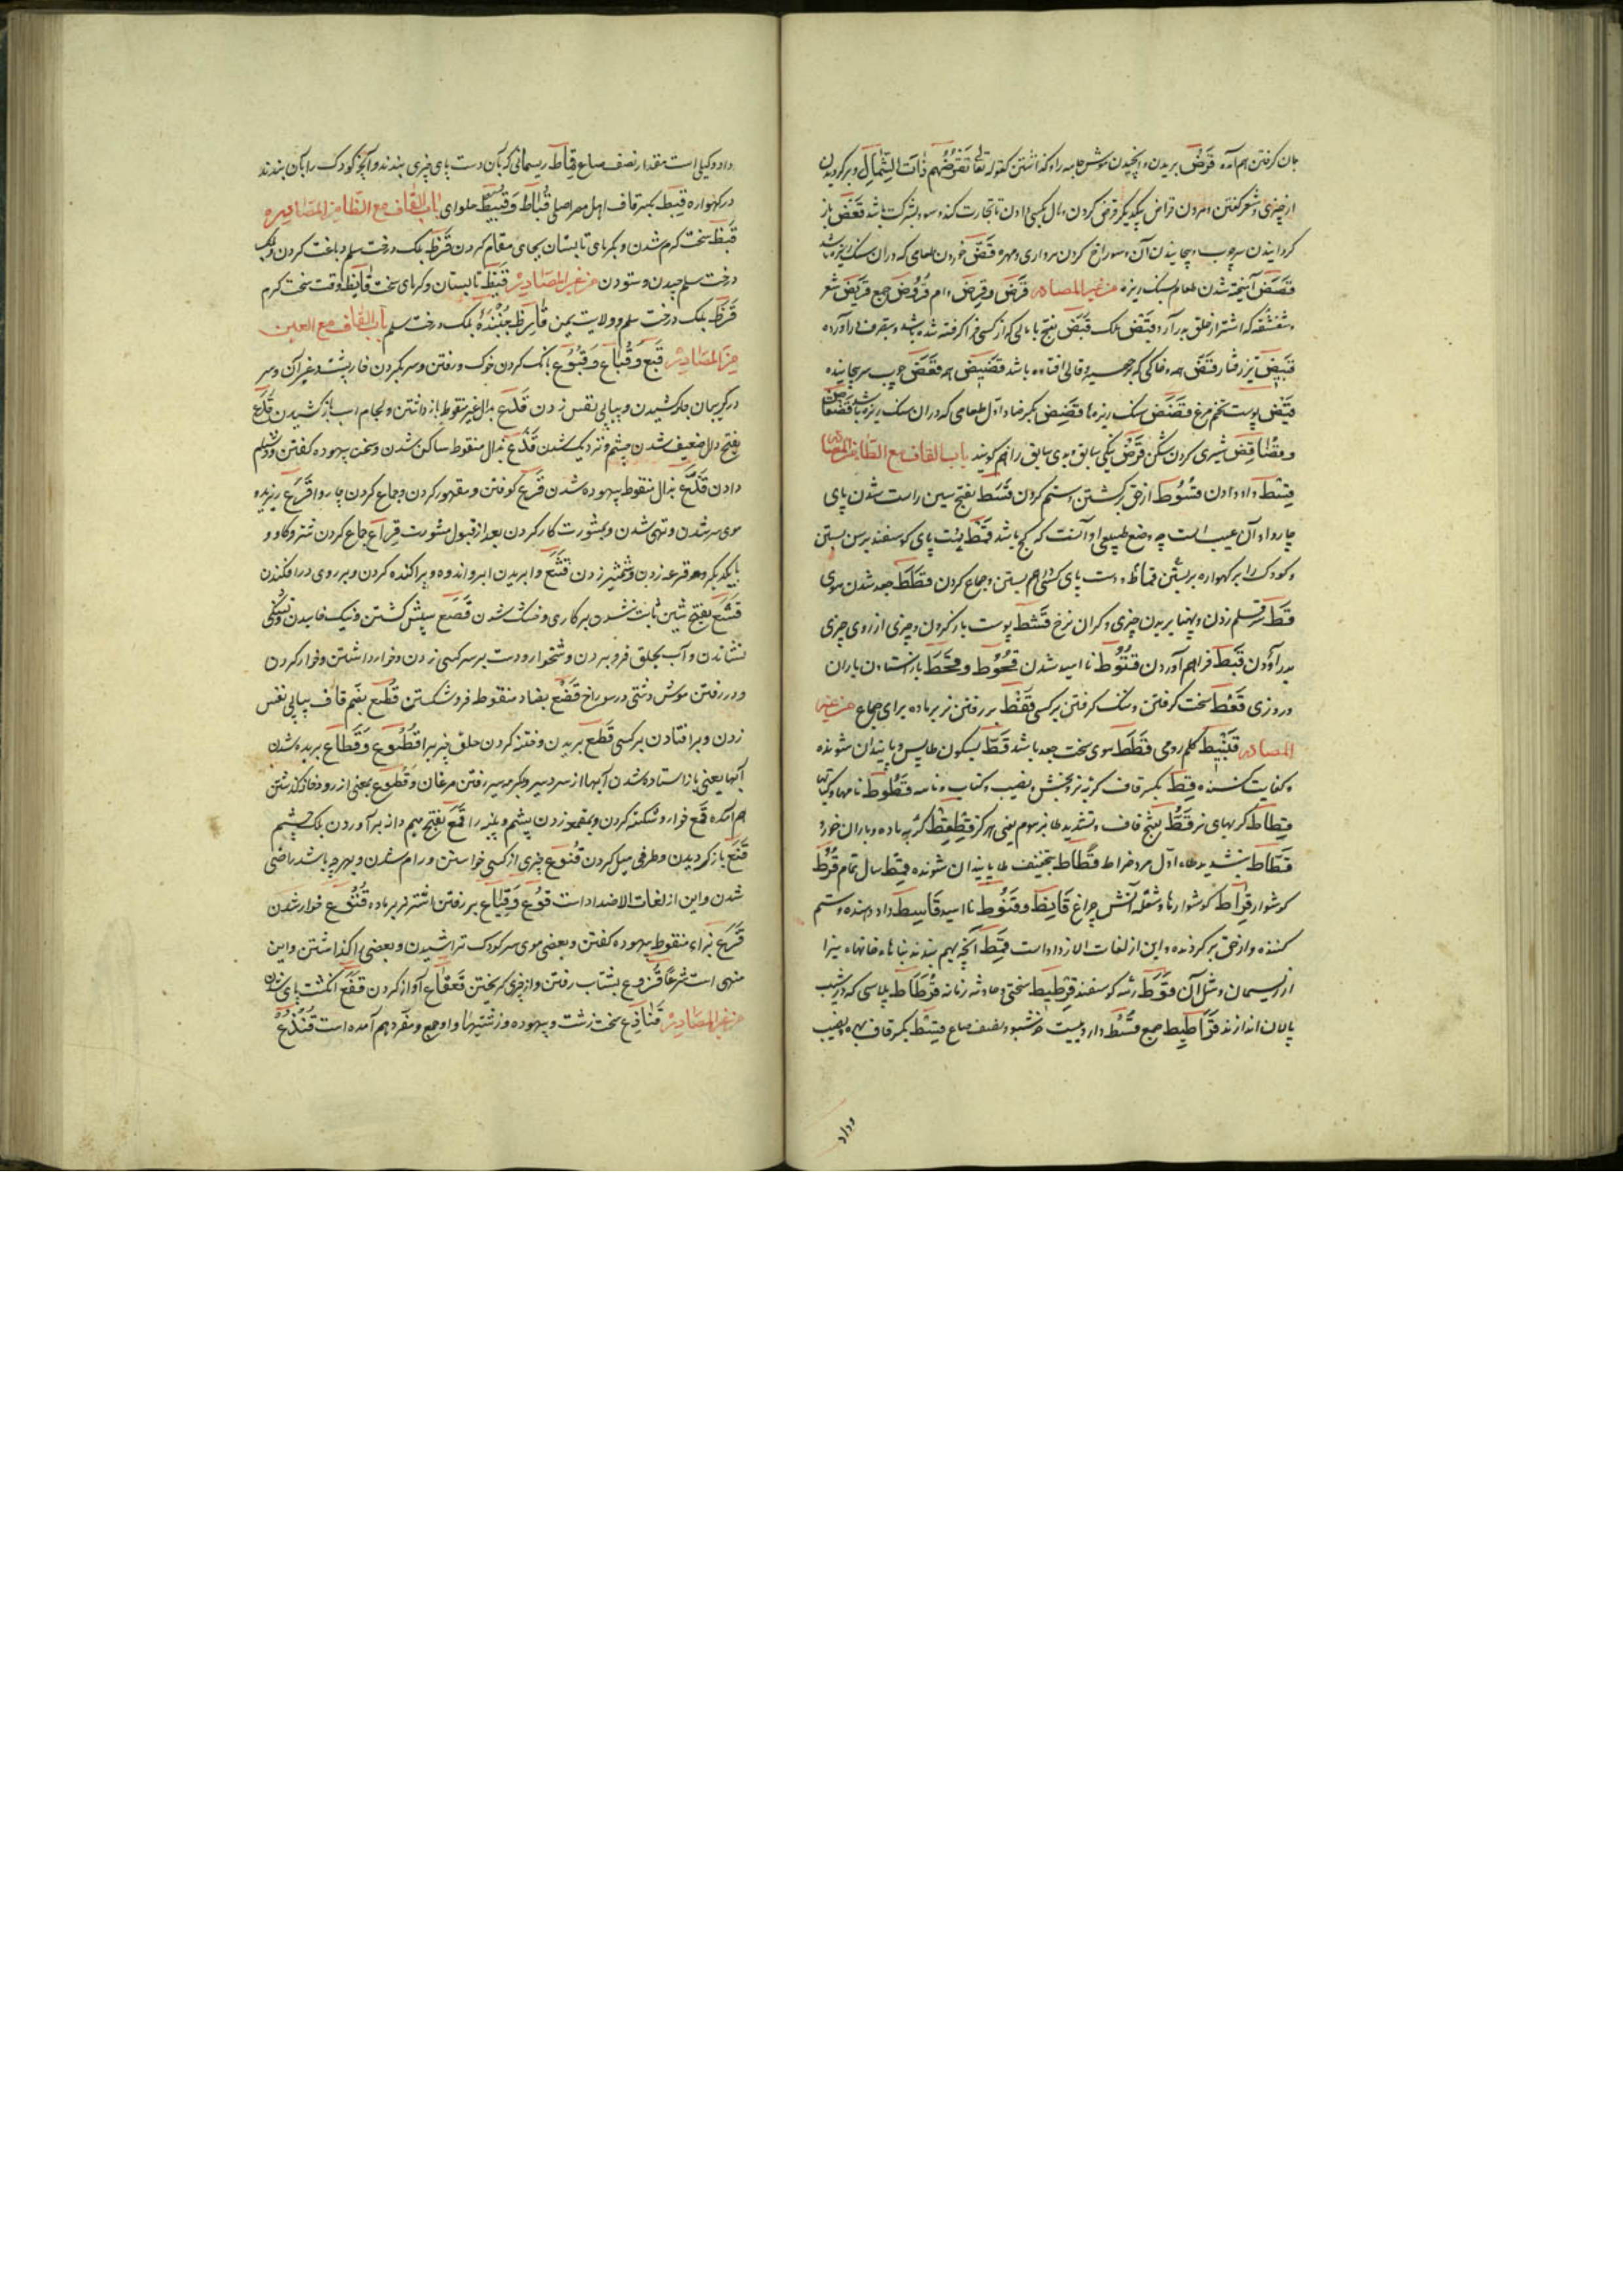 بان گرفتن هم آمده قَرْضْ بریدن و موش جامه را و گذاشتن کقوله تعا تَقْرِضُهُمْ ذاتَ الشِّمالِ و برگردیدن
از چیزی و شعر گفتن و مردن قراض بیکدیگر قرض کردن و مال بکسی دادن تا تجارت کند و سود بشرکت باشد قَعَضْ باز
گردانیدن سر چوب و پیچانیدن آن و سوراخ کردن مرواری و مهره قَضّ خوردن طعامی که در آن سنک ریزه باشد
قَضَضْ آمیخته شدن طعام بسنک ریزه من غیر المصادر قَرْض وقِرض وام قُرُوض جمع قَرِیض شعر
و شقشقه که اشتر از حلق بدر آرد قَبْض ملک قَبَض بفتح با مالی که از کسی فرا گرفته شده باشد و بتصرف در آورده
قَبِیض تیز رفتار قَضَض خاکی که بر قالی افتاده باشد قَضِیض قَعَض چوب سر پیچانیده
قَیْض پوست تخم مرغ قَضَض سنک ریزها قَضِض بکسر ضاد اول طعامی که در آن سنک ریزه باشد
قَرْض نیکی سابق و بدی سابق را هم گویند باب القاف مع الطا من المصادر
قِسْط داد دادن قُسُوط از حق برگشتن و ستم کردن قَسَط بفتح سین راست شدن پای
چاروا و آن عیب است چه وضع طبیعی او آنست که کج باشد قَمْط پای گوسفند برسن بستن
و کودک را بر گهواره بر بستن دست پای کسی بهم بستن و جماع کردن قَطَط جعد شدن موی
قَطّ سر قلم زدن و پهنا بریدن چیزی و گران نرخ قَشْط پوست باز کردن و چیزی از روی چیزی
بدر آوردن قَبْط فراهم آوردن قُنُوط ناامید شدن قُحُوط و قَحْط باز استادن باران
در روزی قَعْط سخت گرفتن و تنک گرفتن بر کسی قَفْط بر رفتن نر بر ماده برای جماع من غیر
المصادر قُنَّبِیط کلم رومی قَطَط موی سخت جعد باشد قَطْ بسکون طا بس و پایندان شونده
و کفایت کننده قِطّ بکسر قاف گربه نر و بخش و نصیب و کتاب و نامه قُطُوط نامها و کتابها
قِطَاط گربهای نر قَطُّ بفتح قاف و تشدید طا مرسوم یعنی هرگز قِطْقِط گربه ماده و باران خورد
قَطّاط بتشدید طاء اول مرد خراط قَطَاط بتخفیف طا پایندان شونده قِیط سال تمام قُرْط
گوشوار قِرَاط گوشوارها و شعله آتش چراغ قَانِط و قَنُوط ناامید قَاسِط داد دهنده و ستم
کننده و از حق برگردنده و این از لغات الاضداد است قِمْط آنچه بهم بندند بناهاء خانهاء نی را
از ریسمان و مثل آن قَوْط رمه گوسفند سختی و حادثه زمانه قُرْطَاط پلاسی که در شیب
پالان اندازند قَرَاطِیط جمع قُسْط دارویست خوشبو و نصف صاع قِسْط بکسر قاف بهره و نصیب
وداد
داد و کیلی است مقدار نصف صاع قِمَاط ریسمانی که بآن دست پای چیزی بندند و آنچه کودک را بآن بندند
در گهواره قِبْط بکسر قاف اهل مصر اصلی قُبَّاط و قُبَّیط حلوای باب القاف مع الظا من المصادر
قَیْظ سخت گرم شدن و بگرمای تابستان بجای مقام کردن قَرْظ ببرک درخت سلم دباغت کردن و برک
درخت سلم چیدن و ستودن من غیر المصادر قَیْظ تابستان و گرمای سخت قَائِظ وقت سخت گرم
قَرَظ برک درخت سلم و ولایت یمن قَارِظ چیننده برک درخت سلم باب القاف مع العین
من المصادر قَبْع و قُبَاع و قُبُوع بانک کردن خوک و رفتن و سر بردن خار پشت و غیر آن و سر
در گریبان جا کشیدن و پیاپی نفس زدن قَدْع بدال غیر منقوط باز داشتن و لجام اسب باز کشیدن قَدَع
بفتح دال ضعیف شدن چشم و نزدیک شدن قَذْع بذال منقوط ساکن شدن و سخن بیهوده گفتن و دشنام
دادن قَذَع بذال منقوط بیهوده شدن قَرْع کوفتن و مقهور کردن و جماع کردن چاروا قَرَع ریزیده
موی سر شدن و تهی شدن و بمشورت کار کردن بعد از قبول مشورت قِرَاع جماع کردن شتر و گاو و
بایکدیگر قرعه زدن و شمشیر زدن قَشْع وابریدن ابر و اندوه و پراکنده کردن و بر روی در افکندن
قَشَع بفتح شین ثابت نشدن بر کاری و خشک شدن قَصْع سپش کشتن و نیک خاییدن و تشنکی
نشاندن و آب بحلق فرو بردن و نشخوار و دست بر سر کسی زدن و خوار داشتن و خوار کردن
و در رفتن موش دشتی در سوراخ قَضْع بضاد منقوط فرو شکستن قُطْع بضم قاف پیاپی نفس
زدن و برافتادن بر کسی قَطْع بریدن و خفه کردن حلق چیز براقُطُوع و قِطَاع بریده شدن
آبها یعنی باز استاده شدن آبها از سردسیر و بگرمسیر رفتن مرغان و قُطُوع بمعنی از رودخانه گذشتن
هم آمده قَمْع خوار و شکسته کردن و بمقمعه زدن پشم و پنبه را قَمَع بفتح میم دانه بر آوردن پلک چشم
قَنْع باز گردیدن و طرفی میل کردن قُنُوع چیزی از کسی خواستن و رام شدن و بهر چه باشد راضی
شدن و این از لغات الاضداد است قَوْع وَقِیَاع بر رفتن اشتر نر بر ماده قُنُوع خوار شدن
قَزَع بزاء منقوط بیهوده گفتن و بعضی موی سر کودک تراشیدن و بعضی را گذاشتن و این
منهی است شرعًا قُزُوع بشتاب رفتن و از چیزی گریختن قَعْقَاع آواز کردن قَفَع انگشت پای
من غیر المصادر قَنَاذِع سخن زشت و بیهوده و زشتیها و او جمع و مفرد هم آمده است قُنْذُع